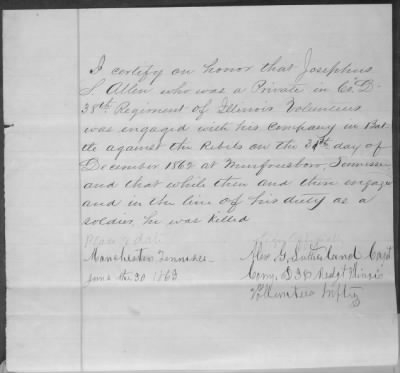 I certify on honor that Josephus
S Allen who was a Private in Co. D-
38th Regiment of Illinois Volunteers
was engaged with his company in Bat
tle against the Rebels on the 31th day of
December 1862 at Murfreesboro, Tennessee
and that while then and there engaged
and in the line of his duty as a
soldier he was Killed
Place & date
Manchester Tennessee - Alex G. Sutherland Capt
June the 30 1863 Comg D 38 Regt Illinois
Volunteers Inftry